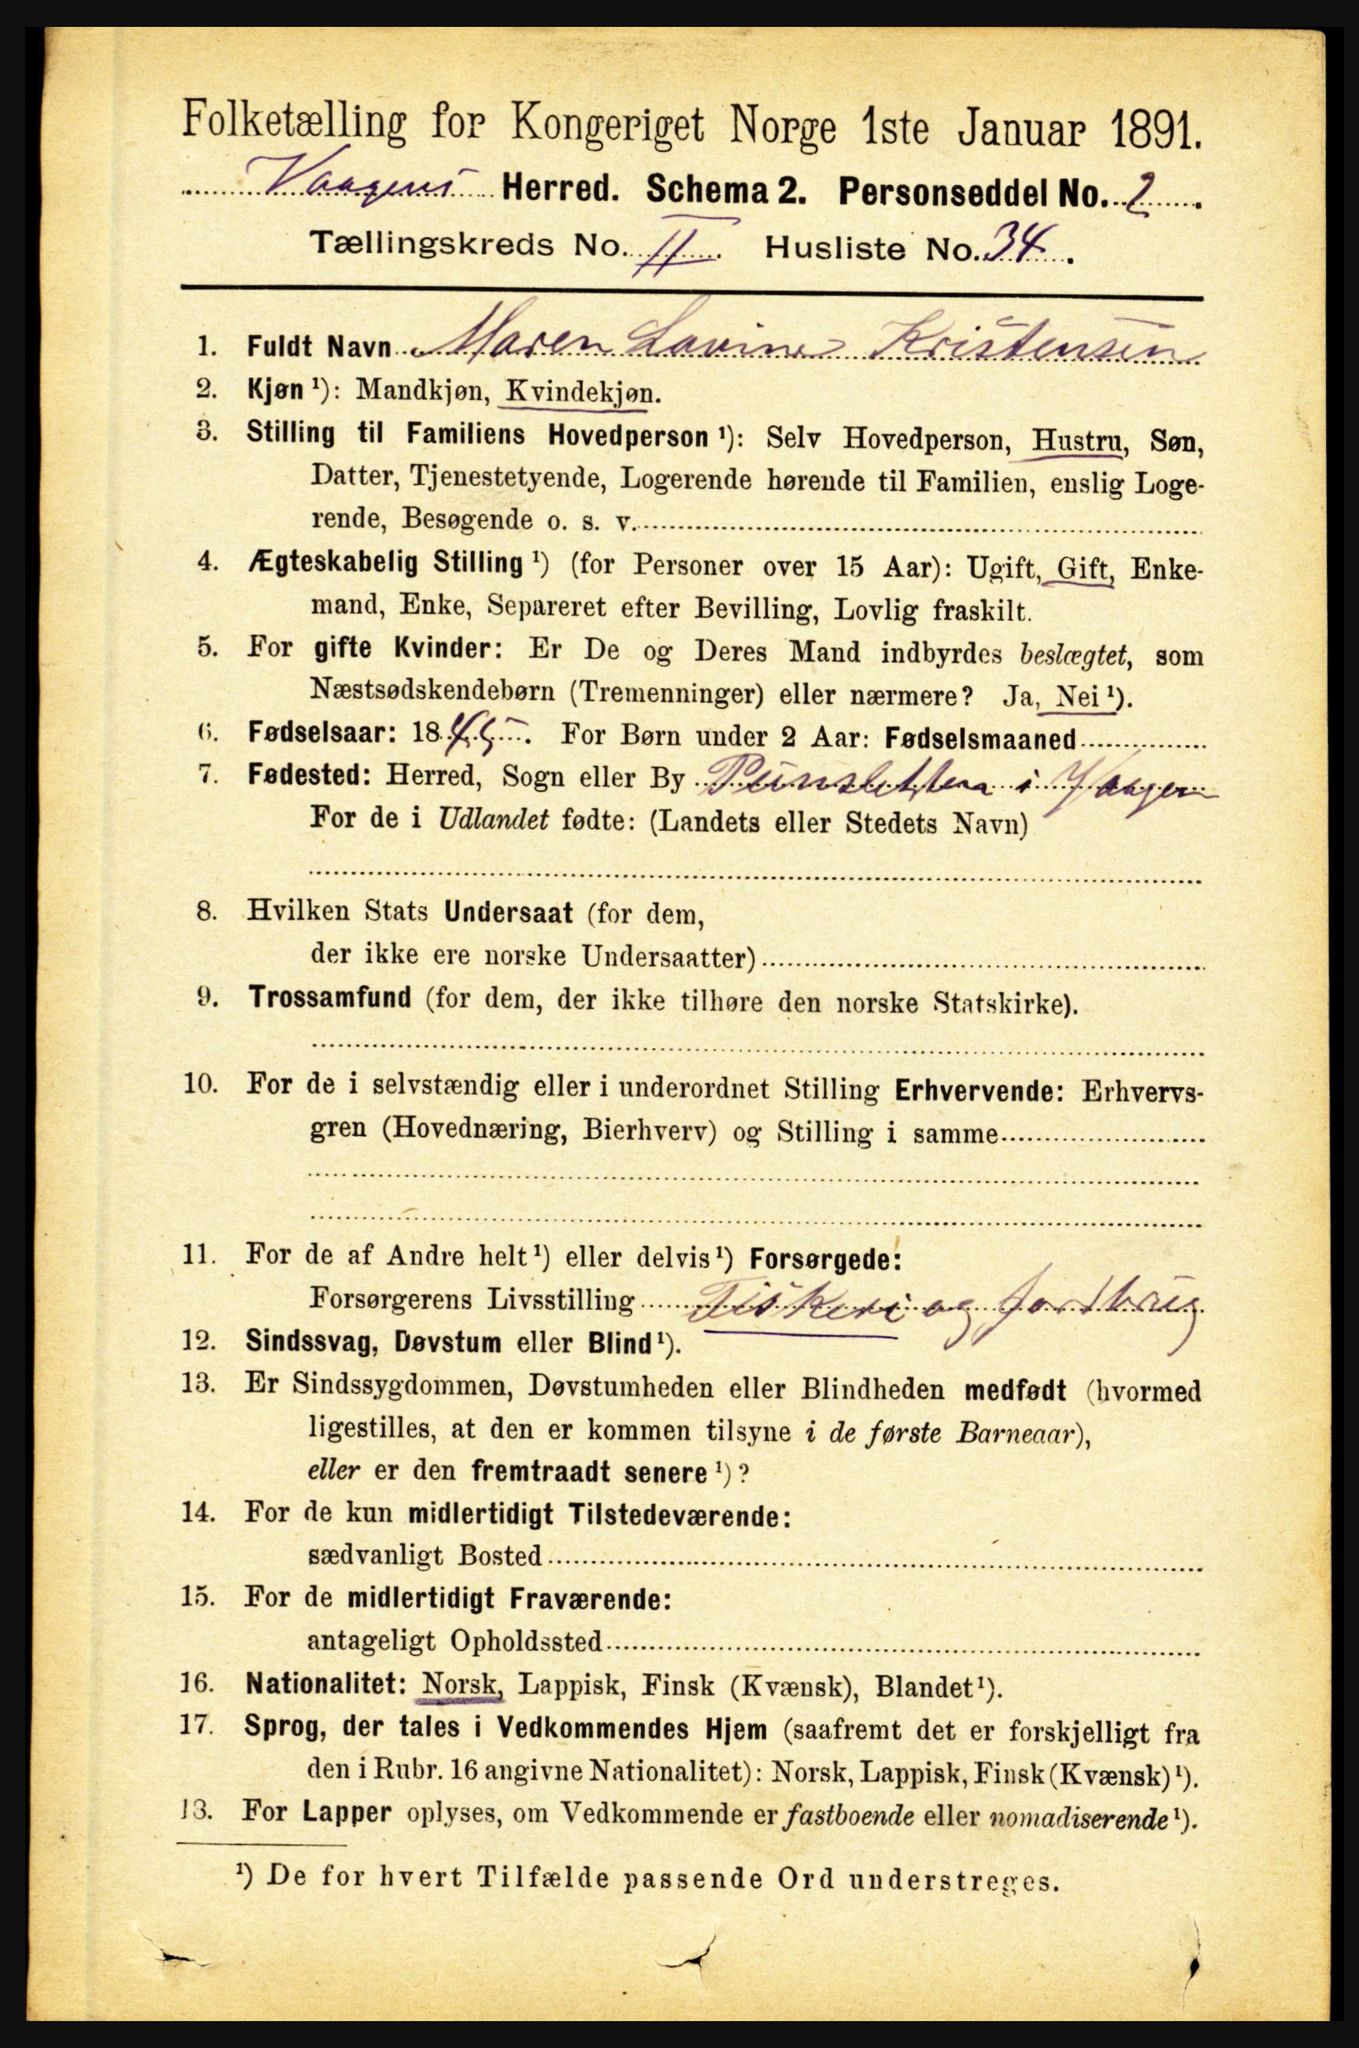 Folketælling for Kongeriget Norge 1ste Januar 1891.
Vaagens Herred. Schema 2. Personseddel No. 2.
Tællingskreds No. II. Husliste No. 34.
1. Fuldt Navn Maren Lovine Kristensen
2. Kjøn ¹): Mandkjøn, Kvindekjøn.
3. Stilling til Familiens Hovedperson ¹): Selv Hovedperson, Hustru, Søn,
Datter, Tjenestetyende, Logerende hørende til Familien, enslig Loge-
rende, Besøgende o. s. v.
4. Ægteskabelig Stilling ¹) (for Personer over 15 Aar): Ugift, Gift, Enke-
mand, Enke, Separeret efter Bevilling, Lovlig fraskilt.
5. For gifte Kvinder: Er De og Deres Mand indbyrdes beslægtet, som
Næstsødskendebørn (Tremenninger) eller nærmere? Ja, Nei ¹).
6. Fødselsaar: 1845. For Børn under 2 Aar: Fødselsmaaned
7. Fødested: Herred, Sogn eller By i Vaagen
For de i Udlandet fødte: (Landets eller Stedets Navn)
8. Hvilken Stats Undersaat (for dem,
der ikke ere norske Undersaatter)
9. Trossamfund (for dem, der ikke tilhøre den norske Statskirke).
10. For de i selvstændig eller i underordnet Stilling Erhvervende: Erhvervs-
gren (Hovednæring, Bierhverv) og Stilling i samme
11. For de af Andre helt ¹) eller delvis ¹) Forsørgede:
Forsørgerens Livsstilling Fiskeri og jordbrug
12. Sindssvag, Døvstum eller Blind ¹).
13. Er Sindssygdommen, Døvstumheden eller Blindheden medfødt (hvormed
ligestilles, at den er kommen tilsyne i de første Barneaar),
eller er den fremtraadt senere ¹)?
14. For de kun midlertidigt Tilstedeværende:
sædvanligt Bosted
15. For de midlertidigt Fraværende:
antageligt Opholdssted
16. Nationalitet: Norsk, Lappisk, Finsk (Kvænsk), Blandet ¹).
17. Sprog, der tales i Vedkommendes Hjem (saafremt det er forskjelligt fra
den i Rubr. 16 angivne Nationalitet): Norsk, Lappisk, Finsk (Kvænsk) ¹).
18. For Lapper oplyses, om Vedkommende er fastboende eller nomadiserende ¹).
¹) De for hvert Tilfælde passende Ord understreges.